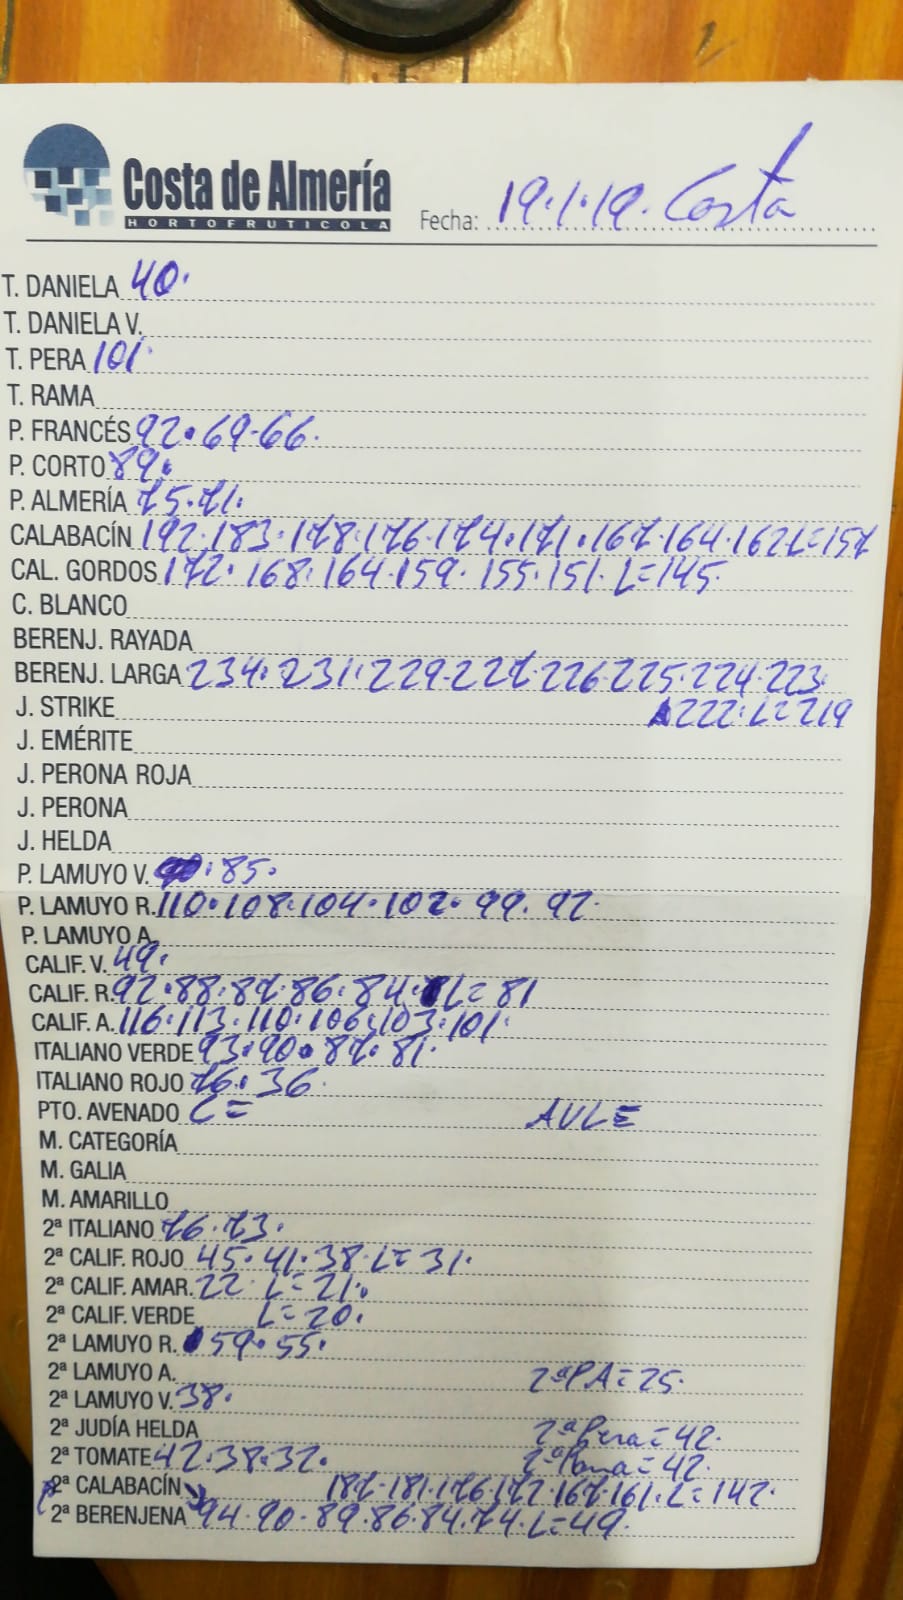 Costa de Almería
HORTOFRUTICOLA
Fecha: 19.1.19. Costa
T. DANIELA 40.
T. DANIELA V.
T. PERA 101.
T. RAMA
P. FRANCÉS 92.69.66.
P. CORTO 89.
P. ALMERÍA 75.71.
CALABACÍN 192.183.178.176.174.171.167.164.162 L=157
CAL. GORDOS 172.168.164.159.155.151. L=145.
C. BLANCO
BERENJ. RAYADA
BERENJ. LARGA 234.231.229.227.226.225.224.223.
J. STRIKE 222. L=219
J. EMÉRITE
J. PERONA ROJA
J. PERONA
J. HELDA
P. LAMUYO V. .85.
P. LAMUYO R. 110.108.104.102.99.92.
P. LAMUYO A.
CALIF. V. 49.
CALIF. R. 92.88.87.86.84. L=81
CALIF. A. 116.113.110.106.103.101.
ITALIANO VERDE 93.90.87.81.
ITALIANO ROJO 76.36.
PTO. AVENADO L= AVLE
M. CATEGORÍA
M. GALIA
M. AMARILLO
2ª ITALIANO 76.73.
2ª CALIF. ROJO 45.41.38. L=31.
2ª CALIF. AMAR. 22. L=21.
2ª CALIF. VERDE L=20.
2ª LAMUYO R. 59.55.
2ª LAMUYO A. 2ªPA=25.
2ª LAMUYO V. 38.
2ª JUDÍA HELDA 2ªPera=42.
2ª TOMATE 42.38.32. =42.
2ª CALABACÍN 187.181.176.172.167.161. L=142.
2ª BERENJENA 94.90.89.86.84.74. L=49.